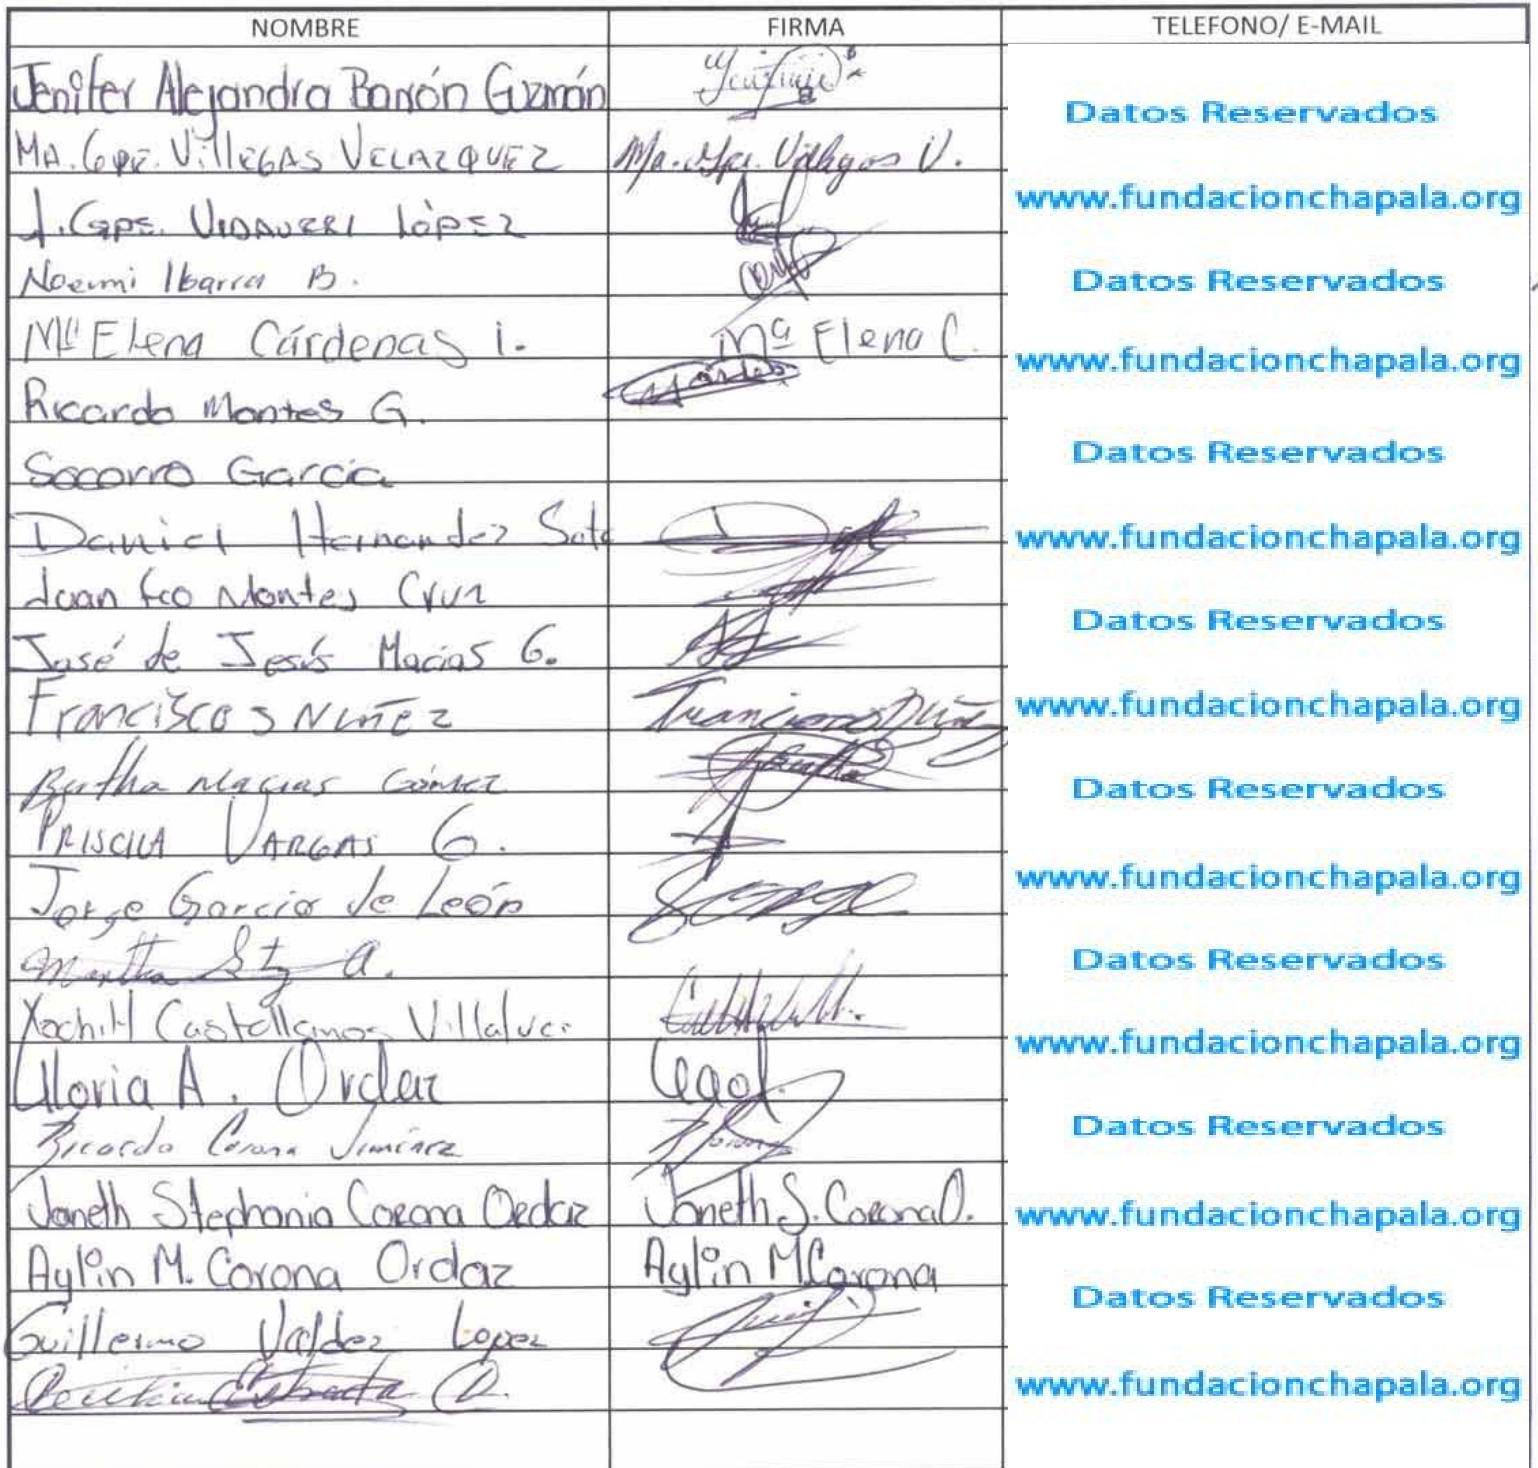 NOMBRE FIRMA TELEFONO/ E-MAIL
Jenifer Alejandra Barrón Guzmán
Datos Reservados
Ma. Gpe. Villegas Velazquez Ma. Gpe. Villegas V.
www.fundacionchapala.org
J. Gpe. Vidaurri López
Noemi Ibarra B.
Datos Reservados
Mª Elena Cárdenas I. Mª Elena C.
www.fundacionchapala.org
Ricardo Montes G.
Datos Reservados
Socorro García
Daniel Hernandez Soto
www.fundacionchapala.org
Juan Fco Montes Cruz
Datos Reservados
José de Jesús Macias G.
Francisco S Nuñez
www.fundacionchapala.org
Bertha Macias Gómez
Datos Reservados
Priscila Vargas G.
www.fundacionchapala.org
Jorge Garcia de León Jorge
Martha A.
Datos Reservados
Xochitl Castellanos
www.fundacionchapala.org
Gloria A. Ordaz
Datos Reservados
Ricardo Corona Jiminez
Janeth Stephania Corona Ordaz Janeth S. Corona O.
www.fundacionchapala.org
Aylin M. Corona Ordaz Aylin M Corona
Datos Reservados
Guillermo Valdez Lopez
www.fundacionchapala.org